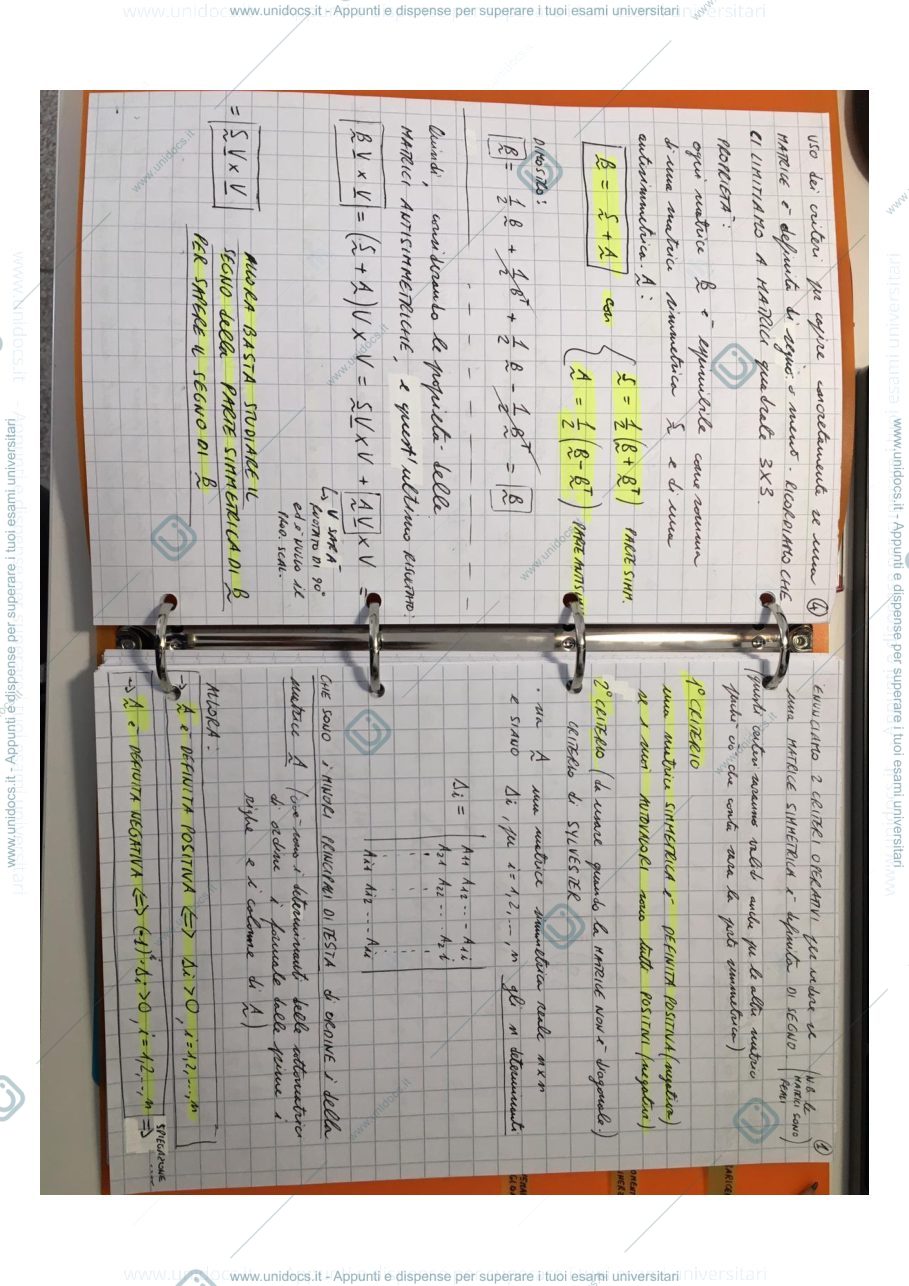 www.unidocs.it - Appunti e dispense per superare i tuoi esami universitari
④
USO dei criteri per capire concretamente se una
MATRICE è definita di segno o meno. RICORDIAMO CHE
CI LIMITIAMO A MATRICI quadrate 3x3.
PROPRIETÀ:
ogni matrice B è esprimibile come somma
di una matrice simmetrica S e di una
antisimmetrica A:
B = S + A con { S = 1/2 (B + Bᵀ) PARTE SIMM.
A = 1/2 (B - Bᵀ) PARTE ANTIS
DIMOSTRO:
B = 1/2 B + 1/2 Bᵀ + 1/2 B - 1/2 Bᵀ = B
Quindi, considerando le proprietà delle
MATRICI ANTISIMMETRICHE, e quest'ultimo RISULTATO:
B V x V = (S + A) V x V = S V x V + A V x V =
↳ V SARÀ
RUOTATO DI 90°
ed è NULLO il
PROD. SCAL.
= S V x V
ALLORA BASTA STUDIARE IL
SEGNO della PARTE SIMMETRICA DI B
PER SAPERE IL SEGNO DI B
①
ENUNCIAMO 2 CRITERI OPERATIVI per vedere se
una MATRICE SIMMETRICA è definita DI SEGNO
N.B. le
MATRICI SONO
REALI
(questi criteri saranno validi anche per le altre matrici
perché ciò che conta sarà la parte simmetrica)
1° CRITERIO
una matrice SIMMETRICA è DEFINITA POSITIVA (negativa)
se i suoi AUTOVALORI sono tutti POSITIVI (negativi)
2° CRITERIO (da usare quando la MATRICE NON è diagonale)
CRITERIO di SYLVESTER
· sia A una matrice simmetrica reale n x n
e SIANO Δi, per i = 1, 2, ..., n gli n determinanti
Δi = | A11 A12 ... A1i
A21 A22 ... A2i
Ai1 Ai2 ... Aii |
CHE SONO i MINORI PRINCIPALI DI TESTA di ORDINE i della
matrice A (cioè sono i determinanti delle sottomatrici
di ordine i formate dalle prime i
righe e i colonne di A)
ALLORA:
→ A è DEFINITA POSITIVA <=> Δi > 0, i = 1, 2, ..., n
→ A è DEFINITA NEGATIVA <=> (-1)ⁱ · Δi > 0, i = 1, 2, ..., n =>
SPIEGAZIONE
www.unidocs.it - Appunti e dispense per superare i tuoi esami universitari
www.unidocs.it - Appunti e dispense per superare i tuoi esami universitari
www.unidocs.it - Appunti e dispense per superare i tuoi esami universitari